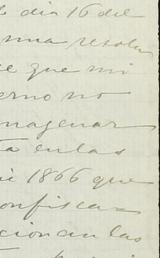 dia 16 del
una resolu
ce que mi
erno no
nagenar
ta en las
de 1866 que
onfisca
cion en las